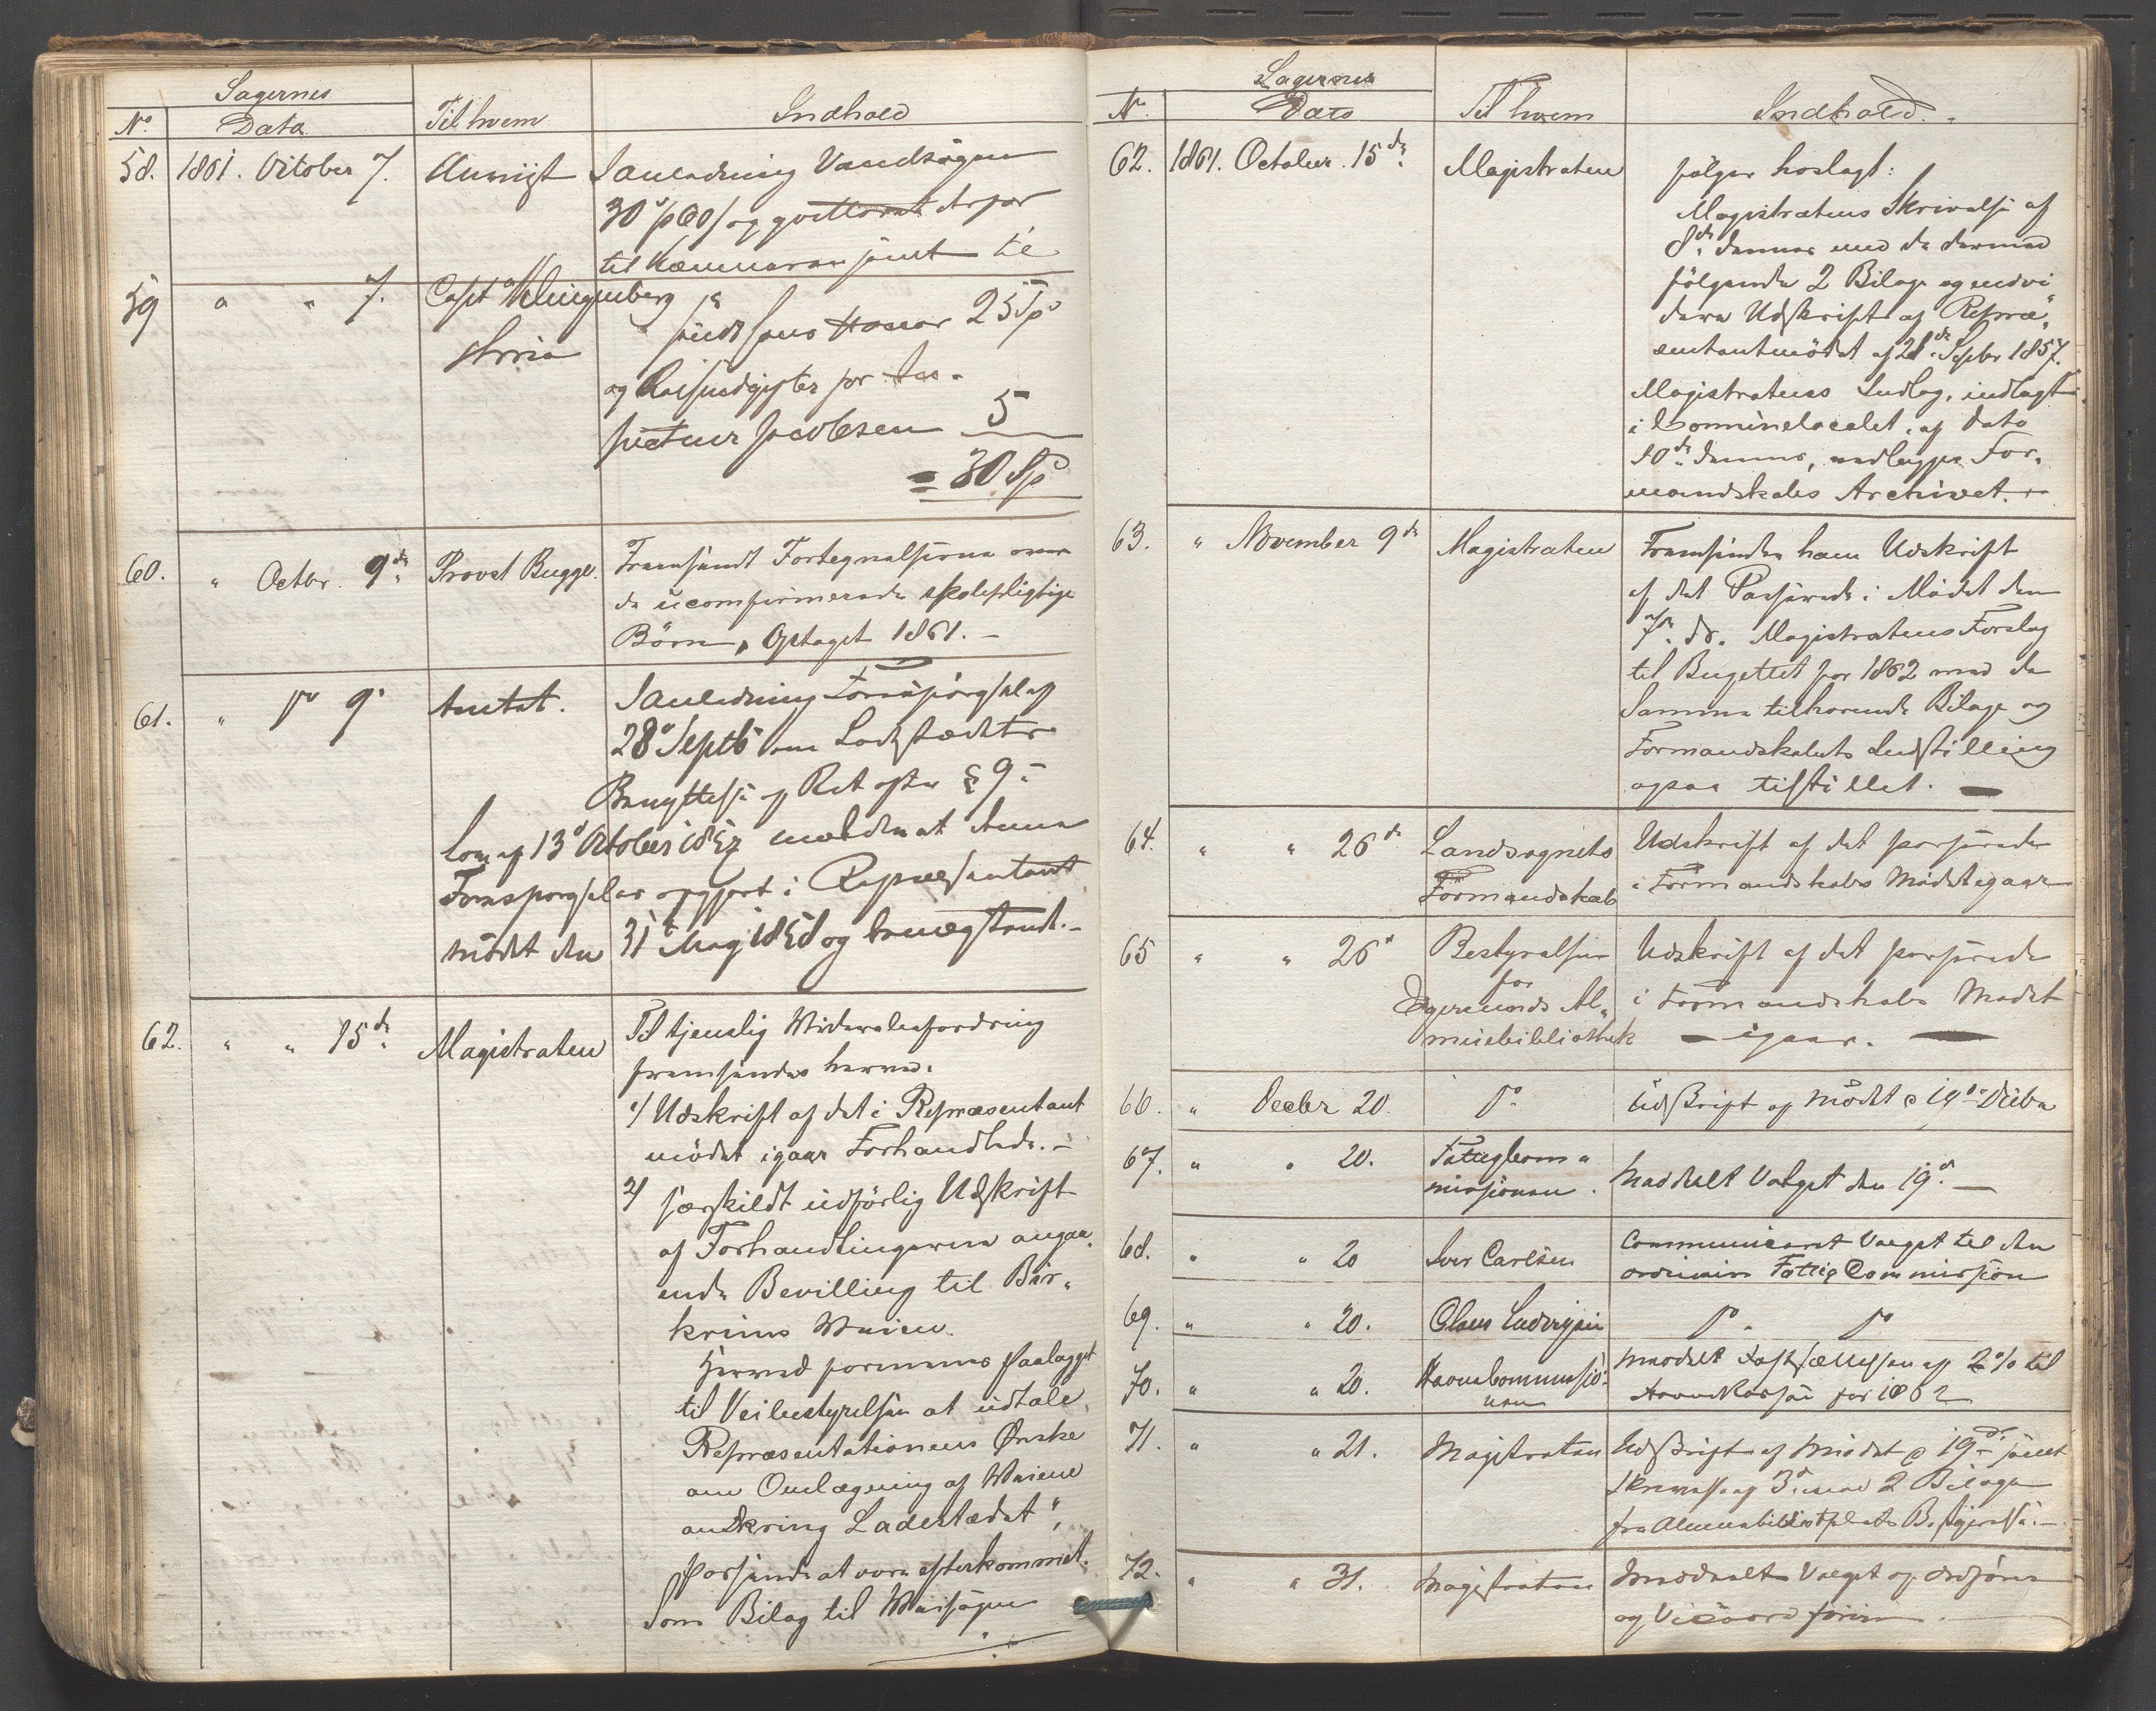 Sagernes
No Data Til hvem Indhold
58. 1861. October 7. Anvist I anledning Vandsagen
30 og qvitteret derfor
til Kæmneren samt til
59 " " 7. Capt Klingenberg
25 Sp
og for
Jacobsen 5
= 30 Sp
60. " Octbr. 9de Provst Bugge. Fremsendt Fortegnelserne over
de uconfirmerede skolepligtige
Børn, Optaget 1861. –
61. " do 9de Amtet. I anledning Forespørgsel af
28de Septb om Ladestædets
Benyttelse af Ret efter § 9 i
Lov af 13de October 1857 meldes at denne
Forespørgsel er opgjort i Repræsentant
mødet den 31te May 1858 og benægtendt. –
62. " " 15de Magistraten Til tjenstlig Widerebefordring
fremsendes herved:
1/ Udskrift af det i Repræsentant
mødet igaar Forhandlede. –
2/ særskildt udførlig Udskrift
af Forhandlingerne angaa„
ende Bevilling til Bir„
krims Veien.
Herved formenes Paalægget
til Veibestyrelsen at udtale
Repræsentationens Ønske
om Omlægning af Veiene
omkring Ladestædet",
forsende at være efterkommet.
Som Bilag til Veisagen
Sagernes
No Dato Til hvem Indhold.
62. 1861. October. 15de Magistraten følger hoslagt:
Magistratens Skrivelse af
8de dennes med de dermed
følgende 2 Bilage og endvi
dere Udskrift af Repræ„
sentantmødet af 28de Septbr 1857.
Magistratens Indlæg, indlagt
i Communelocalet, af Dato
10de dennes, nedlægges For„
mandskabs Archivet. –
63. " November 9de Magistraten Fremsendes ham Udskrift
af det Passerede i Mødet den
7de ds. Magistratens Forslag
til Bugettet for 1862 med de
Samme tilhørende Bilage og
Formandskabets Indstilling
ogsaa tilstillet. –
64. " " 26de Landsognets Udskrift af det passerede
Formandskab i Formandskabs Mødet igaar
65 " " 26de Bestyrelsen Udskrift af det passerede
for i Formandskabs Mødet
Egersunds Al„ – igaar. –
muebibliothek
66. " Decbr 20. do Udskrift af Mødet d 19de Decbr
67. " " 20. Fattigkom„
missionen. Meddelt Valget den 19de –
68. " " 20 Iver Carlsen Communiceret Valget til den
ordinaire Fattig Commission
69. " " 20. Olaus Ludvigsen do do
70. " " 20. Havnekommissio„ Meddelt Fastsættelsen af 2% til
nen Havnekassen for 1862
71. " " 21. Magistraten Udskrift af Mødet d 19de samt
Skrivelse af 3de med 2 Bilage
fra Almuebibliothekets Bestyrelse. –
72. " " 31. Magistraten Meddeelt Valget af Ordfører
og Viceordfører.